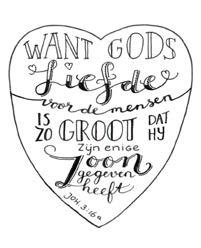 WANT GODS
Liefde
voor de mensen
IS ZO GROOT DAT HY
Zijn enige
Zoon
gegeven
heeft
JOH. 3:16a